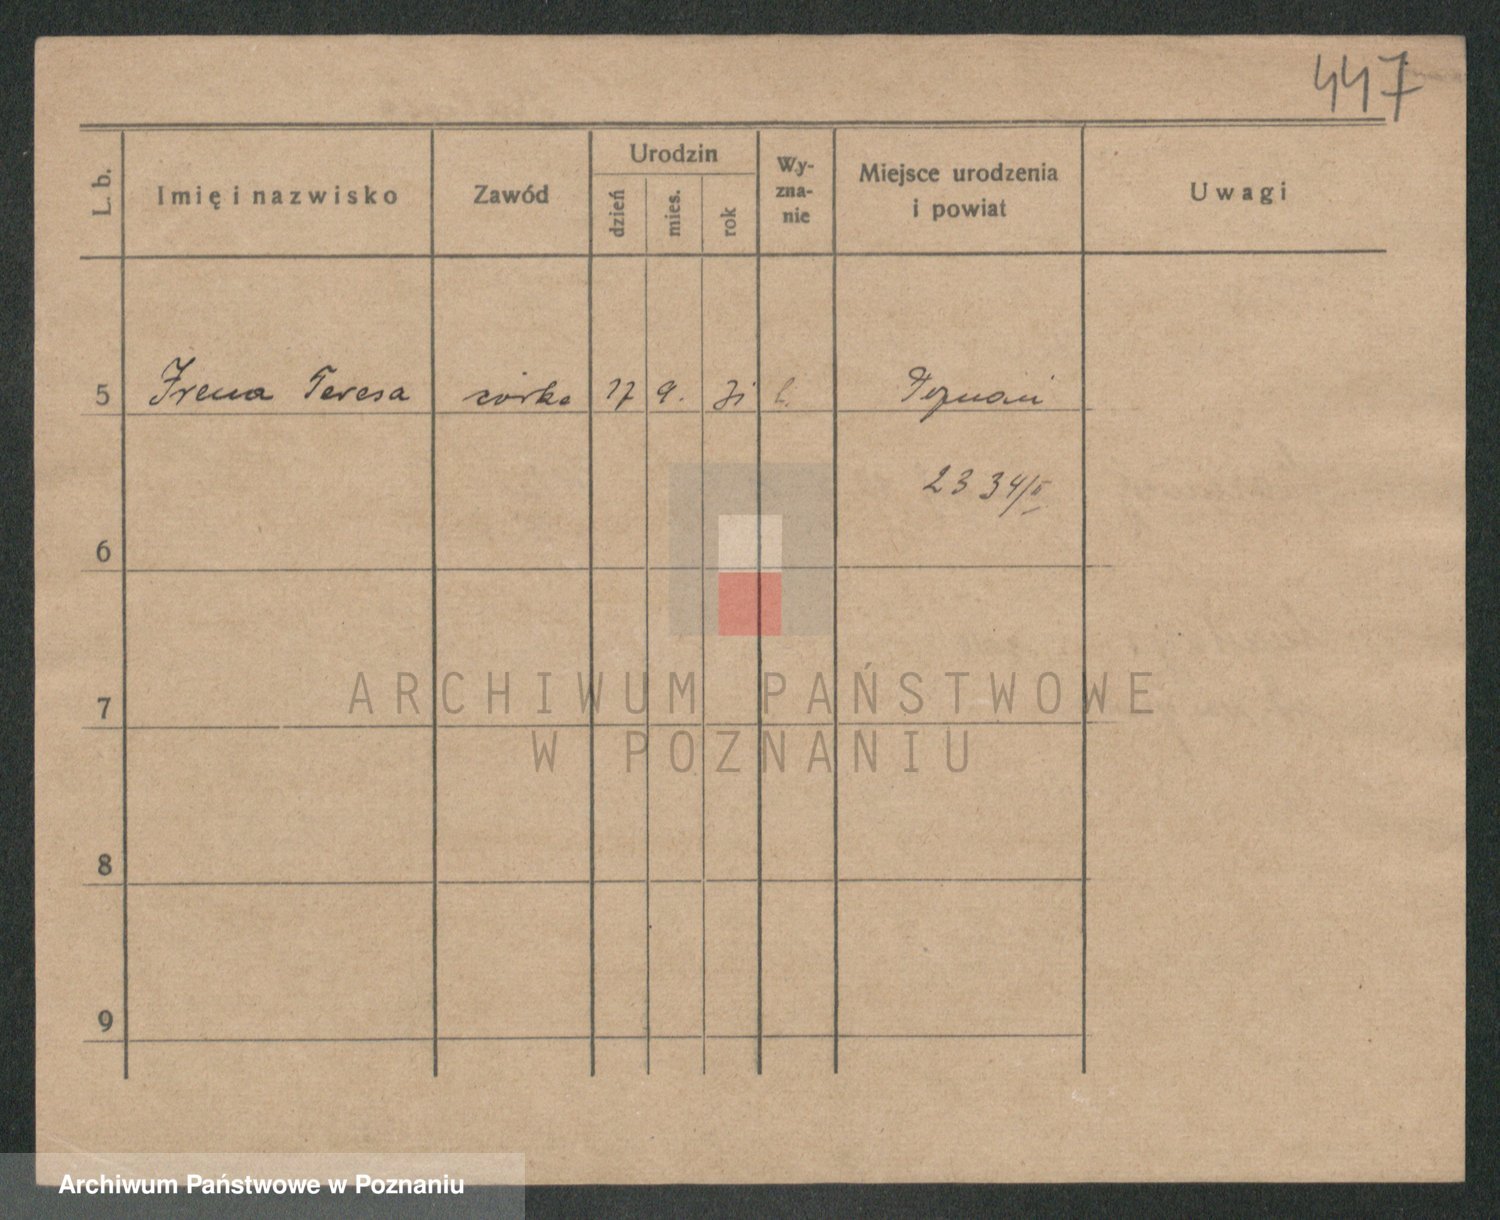 447
L. b.
Imię i nazwisko
Zawód
Urodzin
dzień
mies.
rok
Wy-
zna-
nie
Miejsce urodzenia
i powiat
Uwagi
5 Irena Teresa córka 17 9. 31 Poznań
2334/II
6
7
8
9
ARCHIWUM PAŃSTWOWE
W POZNANIU
Archiwum Państwowe w Poznaniu